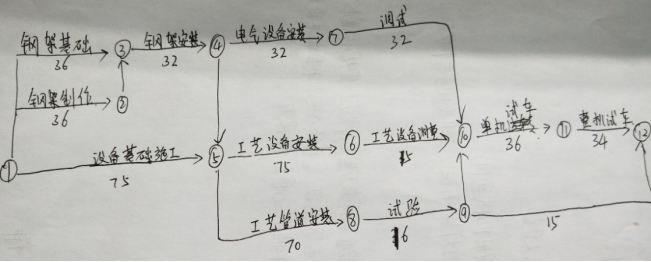 钢架基础 ③ 钢架安装 ④ 电气设备安装 ⑦ 调试
36 32 32 32
钢架制作 ②
36
① 设备基础施工 ⑤ 工艺设备安装 ⑥ 工艺设备调整 ⑩ 单机试车 ⑪ 整机试车 ⑫
75 75 15 36 34
工艺管道安装 ⑧ 试验 ⑨
70 16 15